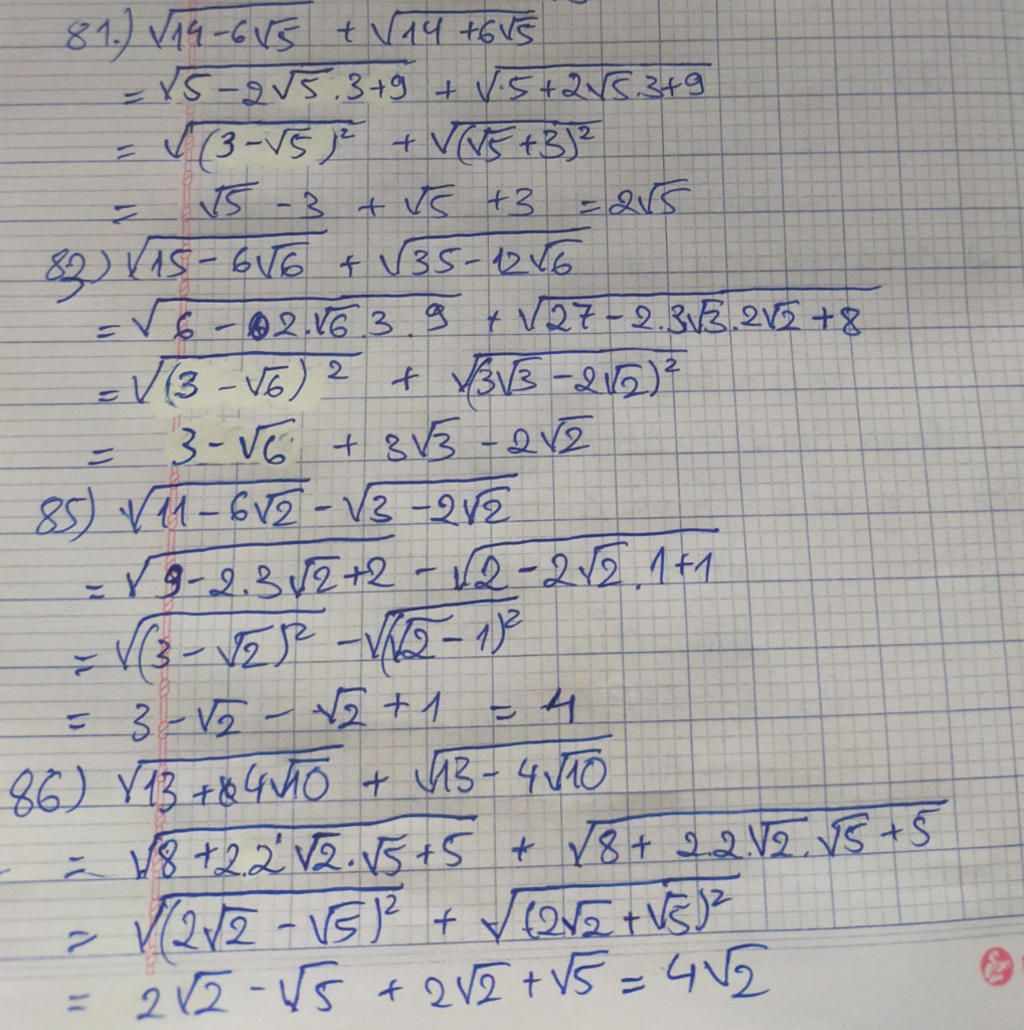 81.) √(14-6√5) + √(14+6√5)
= √(5-2√5.3+9) + √(5+2√5.3+9)
= √((3-√5)²) + √((√5+3)²)
= √5 -3 + √5 +3 = 2√5
83) √(15-6√6) + √(35-12√6)
= √(6-2.√6.3.9) + √(27-2.3√3.2√2+8)
= √((3-√6)²) + √((3√3-2√2)²)
= 3-√6 + 3√3 -2√2
85) √(11-6√2) - √(3-2√2)
= √(9-2.3√2+2) - √(2-2√2.1+1)
= √((3-√2)²) - √((√2-1)²)
= 3-√2 - √2+1 = 4
86) √(13+4√10) + √(13-4√10)
= √(8+2.2√2.√5+5) + √(8+2.2.√2.√5+5)
= √((2√2-√5)²) + √((2√2+√5)²)
= 2√2-√5 + 2√2+√5 = 4√2